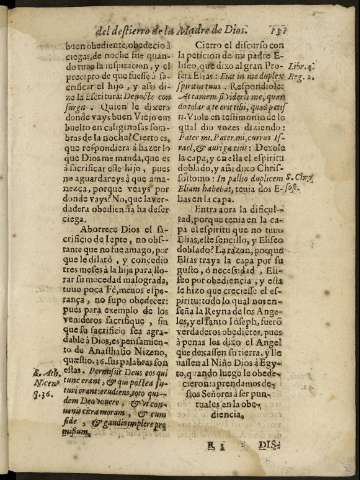 del destierro de la Madre de Dios. 131
buen obediente, obedeciò à
ciegas, de noche fue quan-
do tuuo la inspiracion, y el
precepto de que fuesse à sa-
crificar el hijo, y assi di-
ze la Escritura: De nocte con-
surgit. Quien le dixera
donde vays buen Viejo em-
buelto en caliginosas som-
bras de la noche? Cierto es,
que respondiera à hazer lo
que Dios me manda, que es
à sacrificar este hijo, pues
no aguardareys à que ama-
nezca, porque veays por
donde vays? No, que la ver-
dadera obediencia ha de ser
ciega.
Aborrece Dios el sa-
crificio de Iepte, no obs-
tante que no fue amago, por
que le dilatò, y concediò
tres meses à la hija para llo-
rar su mocedad malograda,
tuuo poca Fè, menos espe-
rança, no supo obedecer:
pues para exemplo de los
venideros sacrifique, sin
que su sacrificio sea agra-
dable à Dios, es pensamien-
to de Anasthasio Nizeno,
quæstio. 36. sus palabras son
ellas. Permisit Deus eos qui
tunc erant, & qui postea fu-
turi erant erudiens, toto quidem
Deo vouere, & vt
citra moram, & cum
fide, & gaudio implere pro-
missum.
B. Ath.
Nicen.
q. 36.
Cierro el discurso con
la peticion de mi padre E-
liseo, que dixo al gran Pro-
feta Elias: Fiat in me duplex
spiritus tuus. Respondiole:
At tamen si videris me, quan-
do tolar à te erit tibi, quod petis-
ti. Viole en testimonio de lo
qual dio vozes diziendo:
Pater mi, Pater mi, currus Is-
rael, & auriga eius: Dexole
la capa, y cõ ella el espiritu
doblado, y añ​​ade Chris-
sostomo: In pallio duplicem
Eliam habebat, tenia dos E-
lias en la capa.
Libro 4.
Reg. 2.
S. Chry
sost.
Entra aora la dificul-
tad, porque tenia en la ca-
pa el espiritu que no tuuo
Elias, este senzillo, y Eliseo
doblado? La razon, porque
Elias traya la capa por su
gusto, ò necessidad, Eli-
seo por obediencia, y esta
le hizo que creciesse el es-
piritu: todo lo qual nos en-
seña la Reyna de los Ange-
les, y el santo Ioseph, fueron
verdaderos obedientes, pues
à penas los dixo el Angel
que dexassen su tierra, y lle
uassen al Niño Dios à Egyp-
to, quando luego le obede-
cieron: aprendamos de es-
tos Señores à ser pun-
tuales en la obe-
diencia.
DIS-